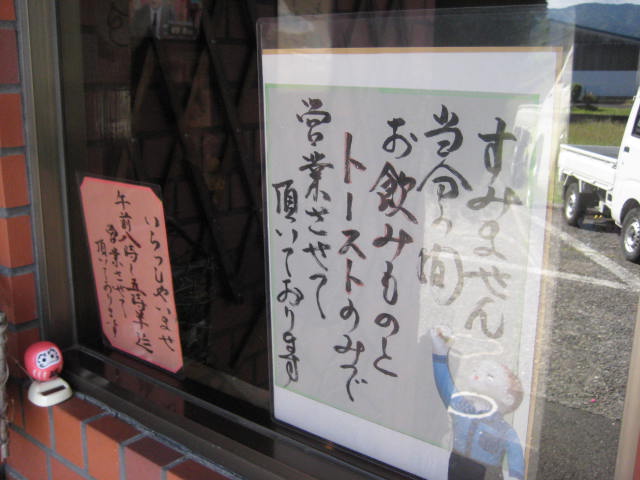 すみません
当分の間
お飲みものと
トーストのみで
営業させて
頂いております
いらっしゃいませ
午前八時〜五時半迄
営業させて
頂いています